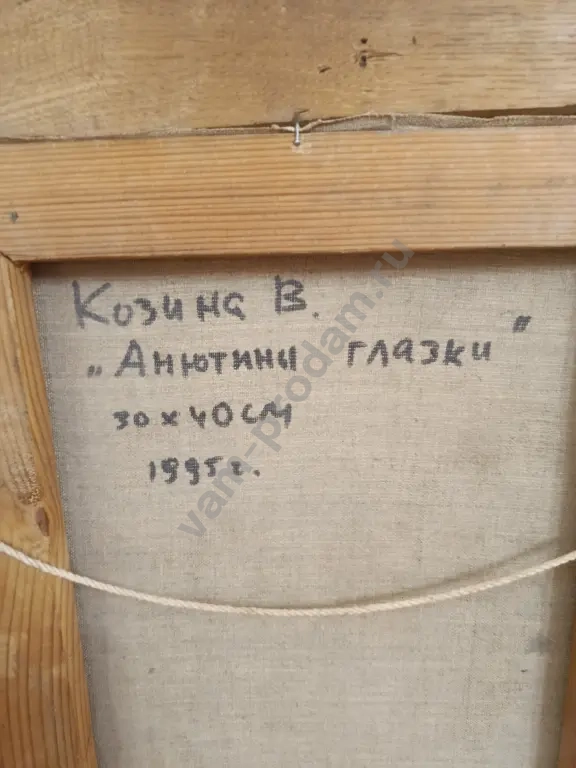 Козина В.
„Анютини глазки"
30 x 40 см
1995 г.
vam-prodam.ru